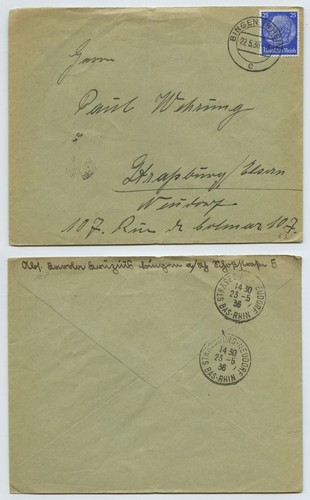 BINGEN
22.5.36
c
25
25
Deutsches Reich
Herrn
Paul Wehrung
Straßburg/Elsass
Neudorf
107. Rue de Colmar 107.
Abs. Bingen a/Rh 5
14 30
23-5
36
BAS-RHIN
STRASBOURG-NEUDORF
14 30
23-5
36
BAS-RHIN